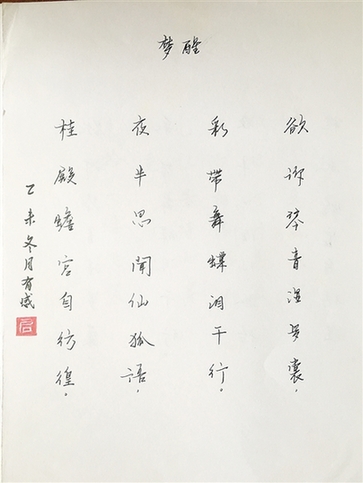 梦醒
欲诉琴音湿罗囊。
彩带舞蝶泪千行。
夜半思闻仙狐语。
桂殿蟾宫自彷徨。
乙未冬月有感